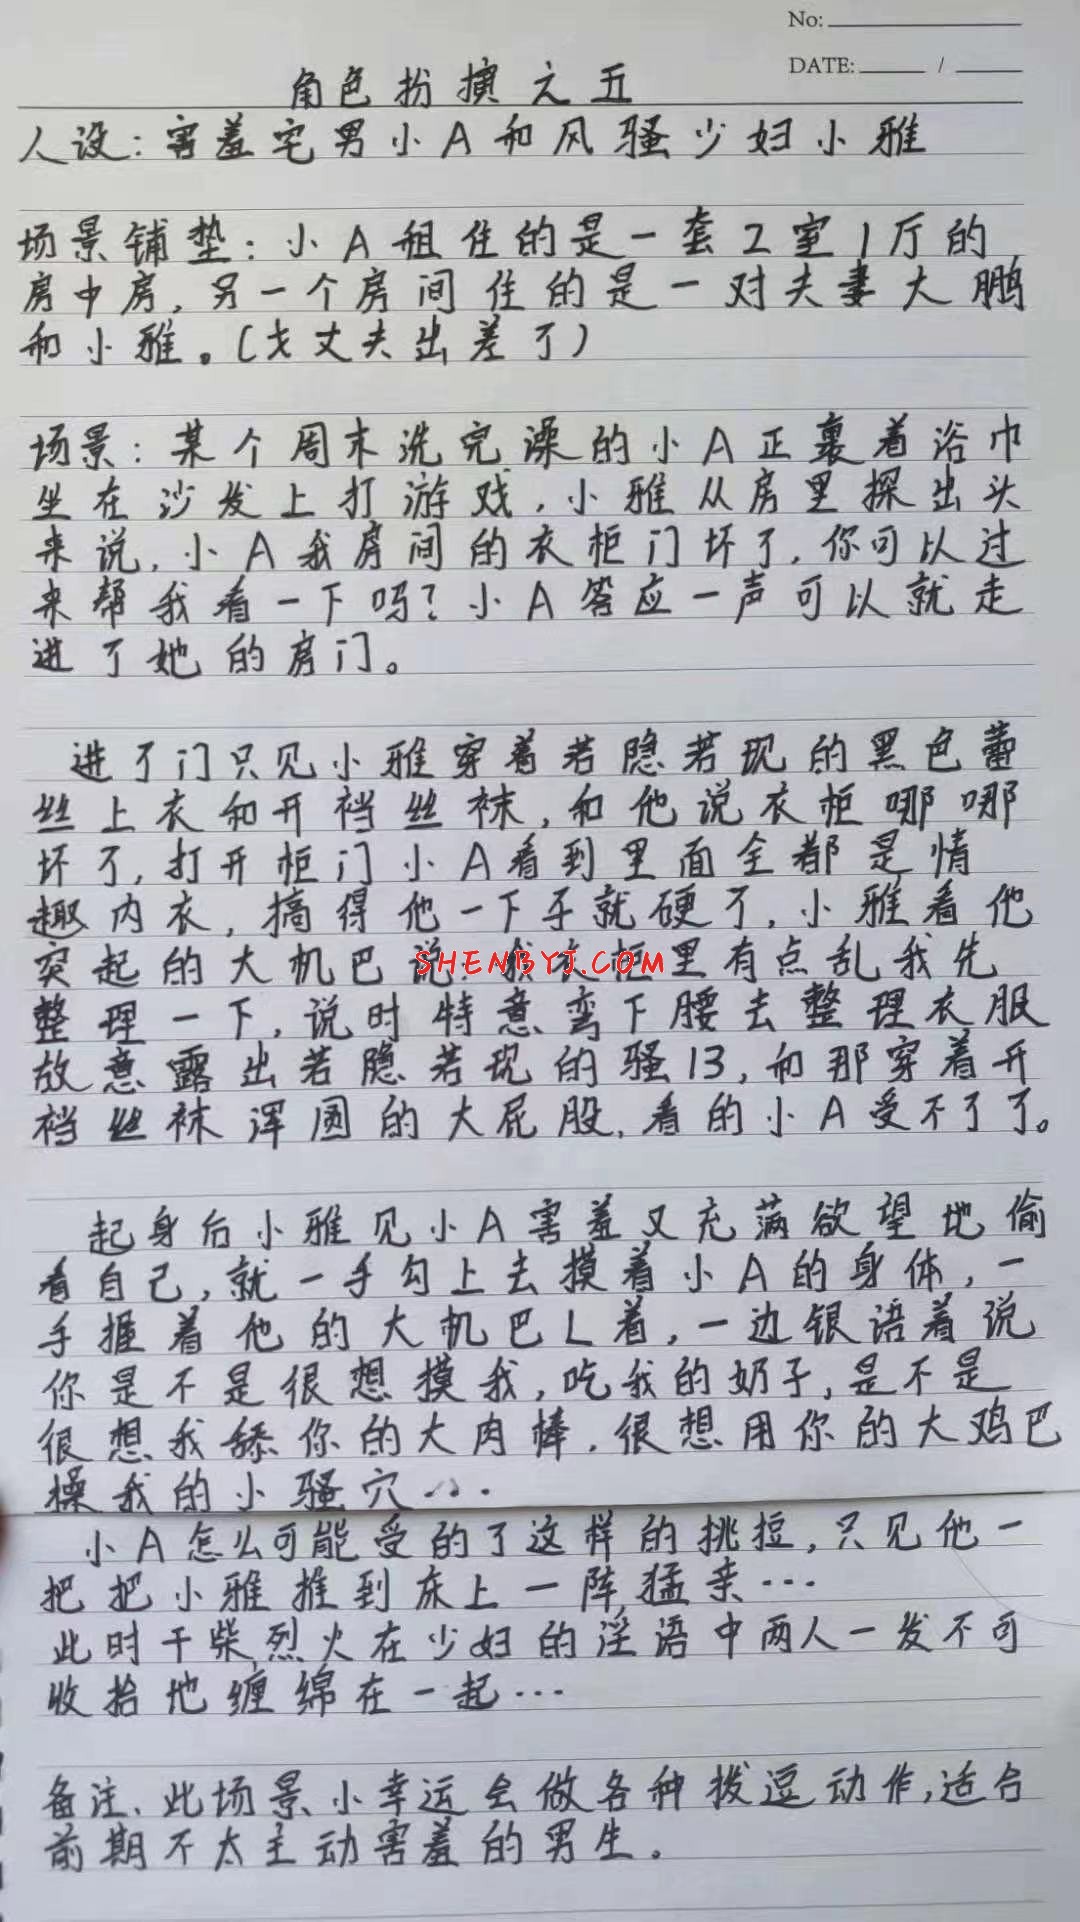 No:
DATE: /
角色扮演之五
人设:害羞宅男小A和风骚少妇小雅
场景铺垫:小A租住的是一套2室1厅的
房中房,另一个房间住的是一对夫妻大鹏
和小雅。(戈丈夫出差了)
场景:某个周末洗完澡的小A正裹着浴巾
坐在沙发上打游戏,小雅从房里探出头
来说,小A我房间的衣柜门坏了,你可以过
来帮我看一下吗?小A答应一声可以就走
进了她的房门。
进了门只见小雅穿着若隐若现的黑色蕾
丝上衣和开裆丝袜,和他说衣柜哪哪
坏了,打开柜门小A看到里面全都是情
趣内衣,搞得他一下子就硬了,小雅看他
突起的大机巴说,我衣柜里有点乱我先
SHENBYJ.COM
整理一下,说时特意弯下腰去整理衣服
故意露出若隐若现的骚13,和那穿着开
裆丝袜浑圆的大屁股,看的小A受不了了。
起身后小雅见小A害羞又充满欲望地偷
看自己,就一手勾上去摸着小A的身体,一
手握着他的大机巴L着,一边银语着说
你是不是很想摸我,吃我的奶子,是不是
很想我舔你的大肉棒,很想用你的大鸡巴
操我的小骚穴...
小A怎么可能受的了这样的挑逗,只见他一
把把小雅推到床上一阵猛亲...
此时干柴烈火在少妇的淫语中两人一发不可
收拾地缠绵在一起...
备注、此场景小幸运会做各种拨逗动作,适合
前期不太主动害羞的男生。